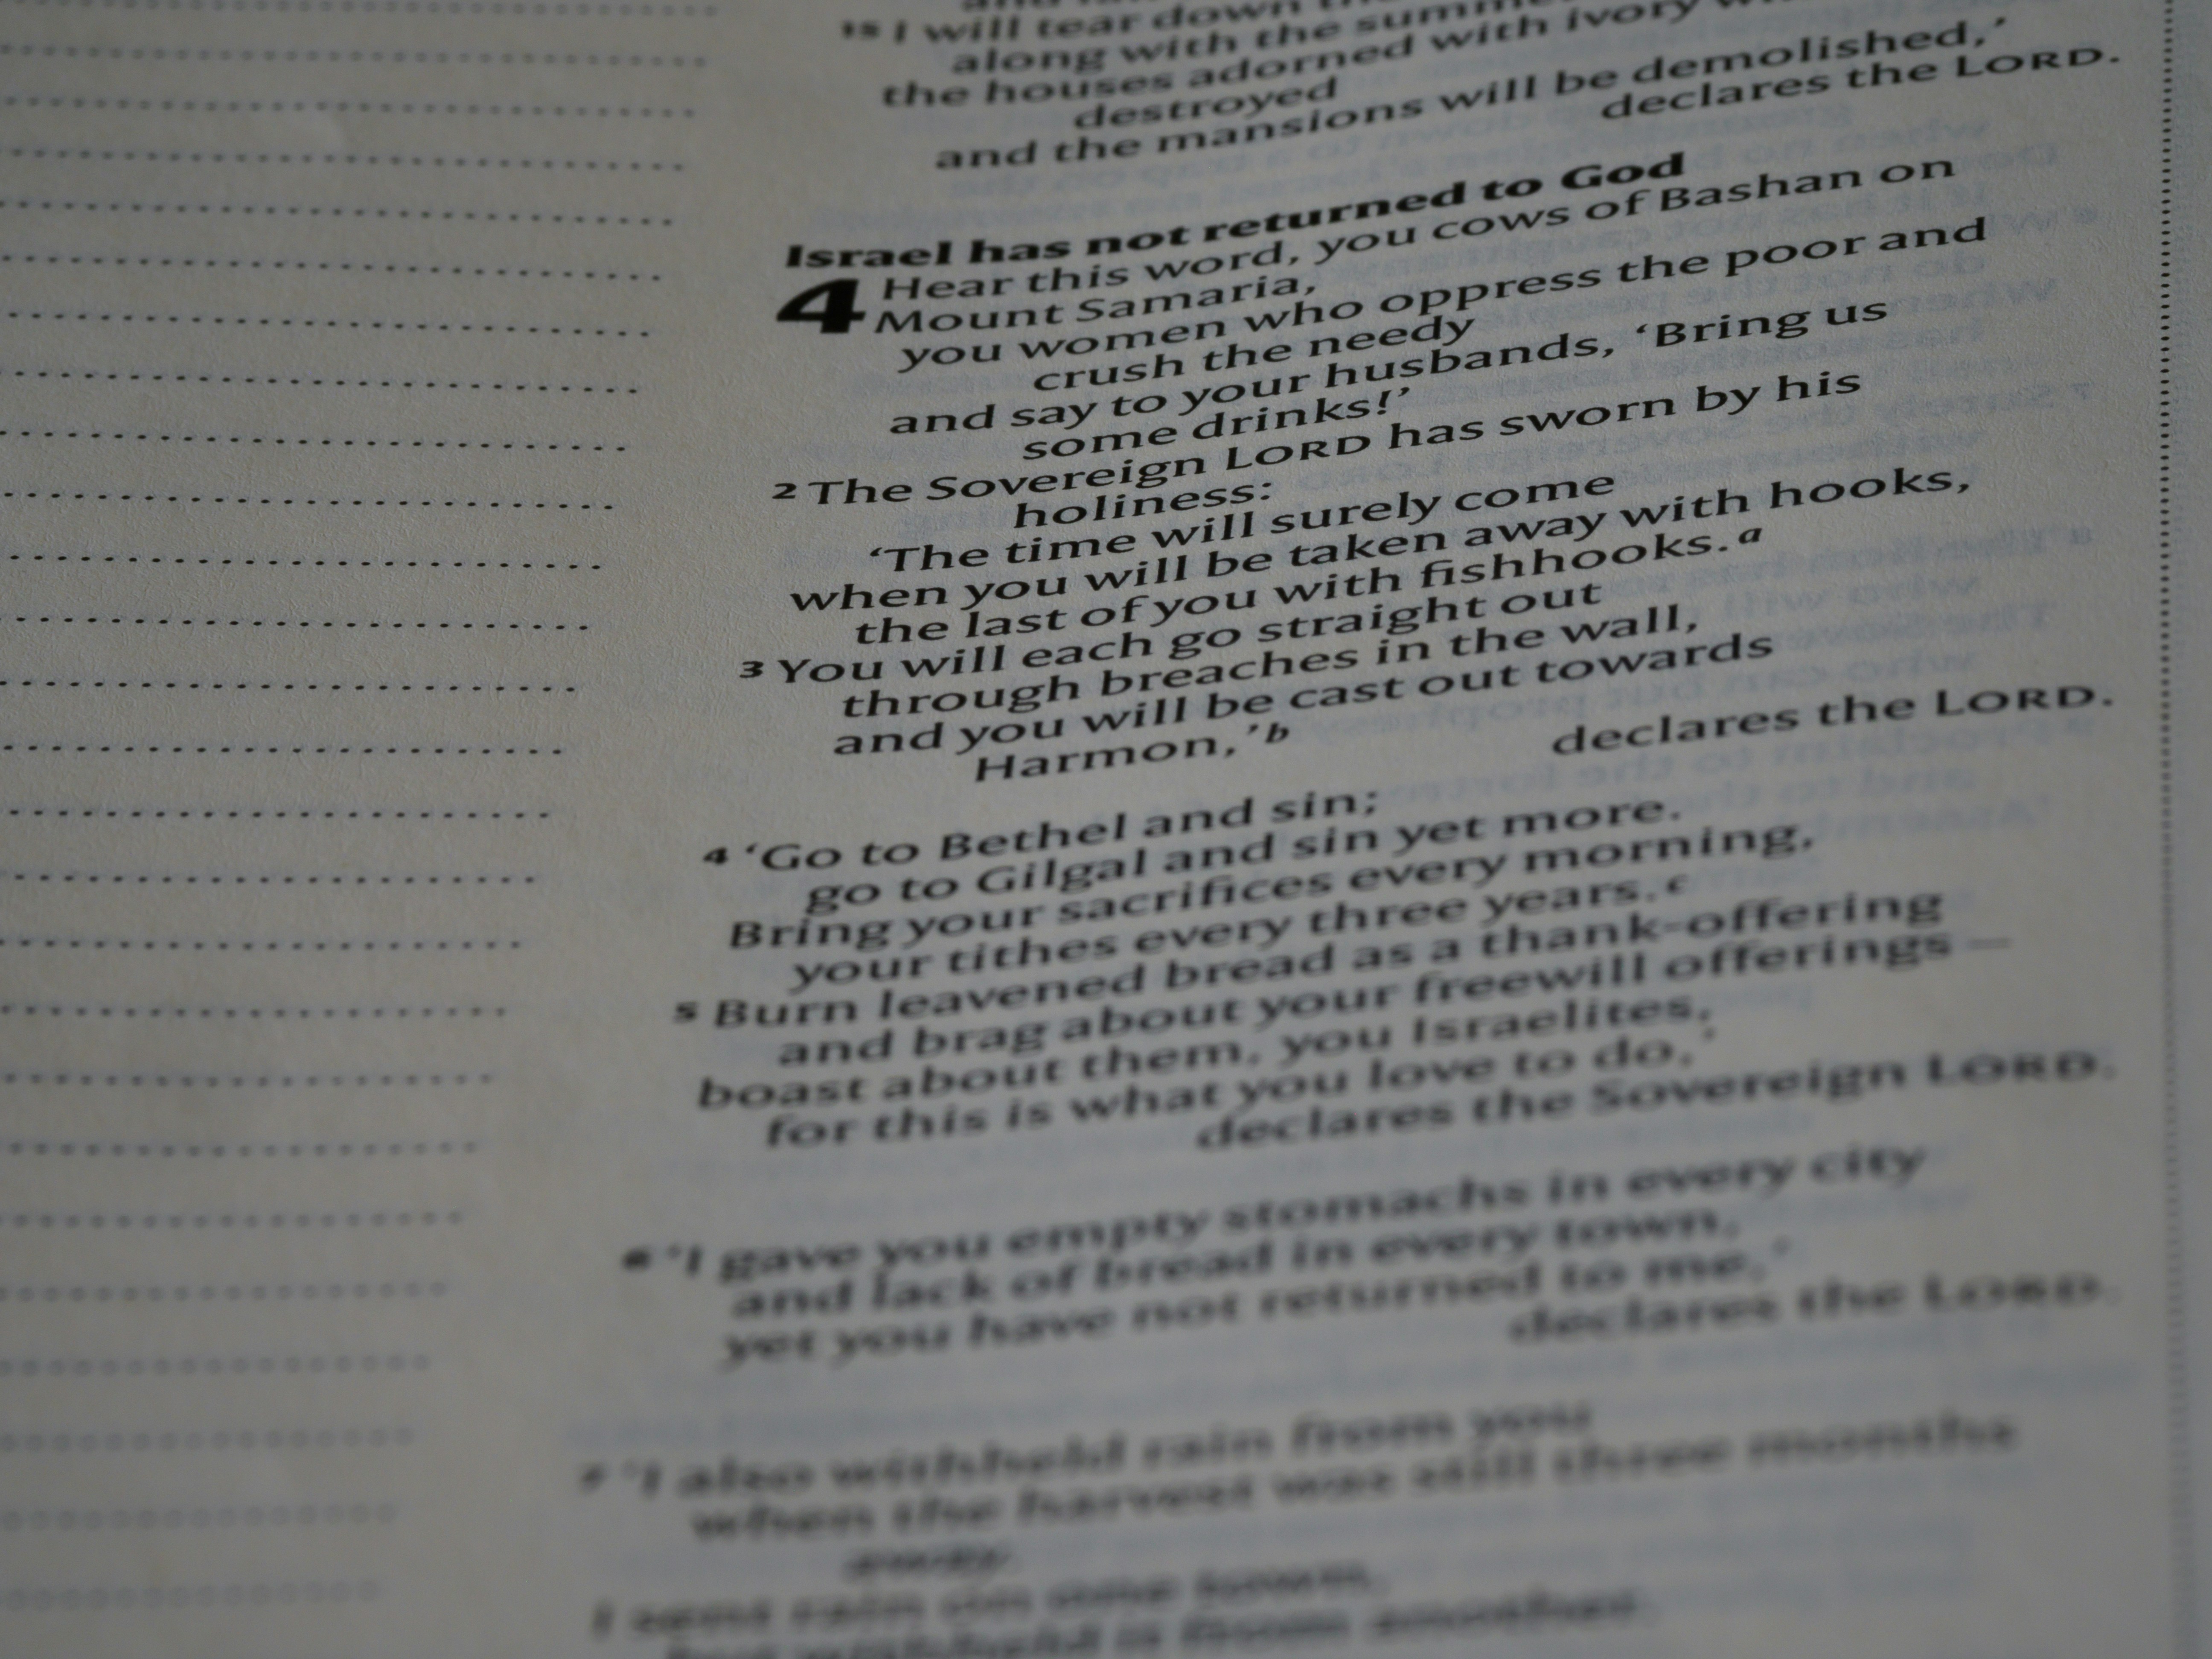 15 I will tear down
along with the
the houses adorned with ivory
destroyed
and the mansions will be demolished,’
declares the LORD.
Israel has not returned to God
4 Hear this word, you cows of Bashan on
Mount Samaria,
you women who oppress the poor and
crush the needy
and say to your husbands, ‘Bring us
some drinks!’
2 The Sovereign LORD has sworn by his
holiness:
‘The time will surely come
when you will be taken away with hooks,
the last of you with fishhooks.a
3 You will each go straight out
through breaches in the wall,
and you will be cast out towards
Harmon,’b
declares the LORD.
4 ‘Go to Bethel and sin;
go to Gilgal and sin yet more.
Bring your sacrifices every morning,
your tithes every three years.c
5 Burn leavened bread as a thank-offering
and brag about your freewill offerings –
boast about them, you Israelites,
for this is what you love to do,’
declares the Sovereign LORD.
6 ‘I gave you empty stomachs in every city
and lack of bread in every town,
yet you have not returned to me,’
declares the LORD.
7 ‘I also withheld rain from you
when the harvest was still three months
away.
I sent rain on one town,
but withheld it from another.